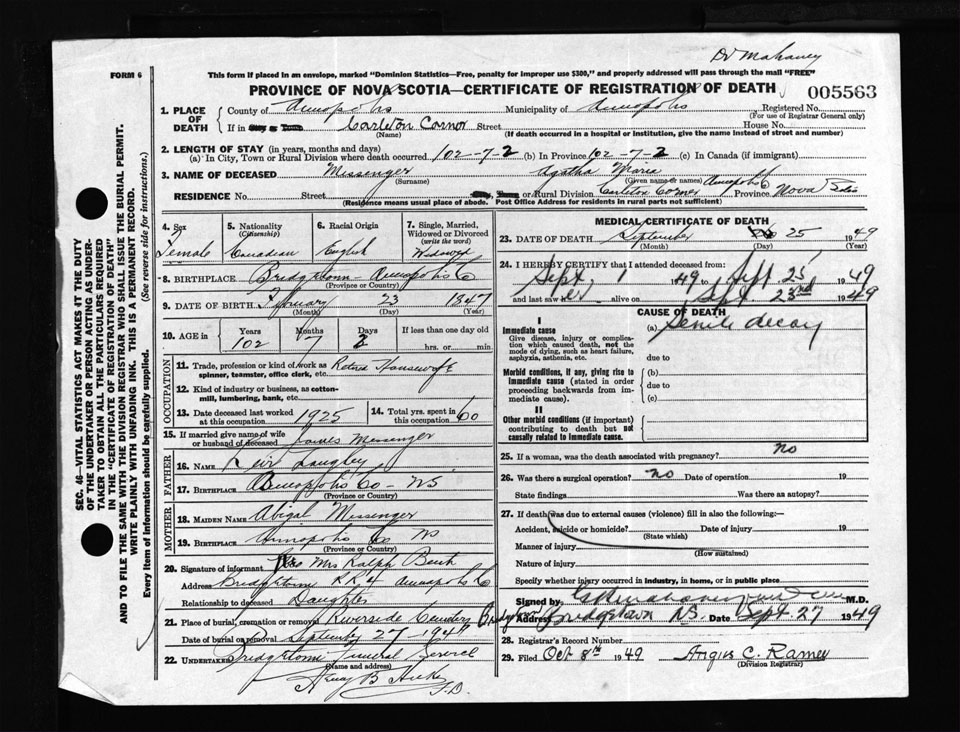 Dr Mahaney
FORM 6
This form if placed in an envelope, marked "Dominion Statistics—Free, penalty for improper use $300," and properly addressed will pass through the mail "FREE"
PROVINCE OF NOVA SCOTIA—CERTIFICATE OF REGISTRATION OF DEATH
005563
1. PLACE OF DEATH County of Annapolis Municipality of Annapolis Registered No.
(For use of Registrar General only)
If in City or Town Carleton Corner Street House No.
(Name) (If death occurred in a hospital or institution, give the name instead of street and number)
2. LENGTH OF STAY (in years, months and days)
(a) In City, Town or Rural Division where death occurred 102-7-2 (b) In Province 102-7-2 (c) In Canada (if immigrant)
3. NAME OF DECEASED Messenger Agatha Maria
(Surname) (Given name or names)
RESIDENCE No. Street or Rural Division Carleton Corner Annapolis Co Province Nova Scotia
(Residence means usual place of abode. Post Office Address for residents in rural parts not sufficient)
4. Sex Female
5. Nationality (Citizenship) Canadian
6. Racial Origin English
7. Single, Married, Widowed or Divorced (write the word) Widowed
8. BIRTHPLACE Bridgetown - Annapolis Co
(Province or Country)
9. DATE OF BIRTH February 23 1847
(Month) (Day) (Year)
10. AGE in Years 102 Months 7 Days 2 If less than one day old
hrs. or min.
OCCUPATION
11. Trade, profession or kind of work as spinner, teamster, office clerk, etc. Retired Housewife
12. Kind of industry or business, as cotton-mill, lumbering, bank, etc.
13. Date deceased last worked at this occupation 1925
14. Total yrs. spent in this occupation 60
15. If married give name of wife or husband of deceased James Messenger
FATHER
16. NAME Langley
17. BIRTHPLACE Annapolis Co - NS
(Province or Country)
MOTHER
18. MAIDEN NAME Abigal Messenger
19. BIRTHPLACE Annapolis Co NS
(Province or Country)
20. Signature of informant Mrs Ralph
Address Bridgetown RR 4 Annapolis Co
Relationship to deceased Daughter
21. Place of burial, cremation or removal Riverside Cemetery Bridgetown
Date of burial or removal September 27 - 1949
22. Undertaker Bridgetown Funeral Service
(Name and address)
Henry B Hicks F.D.
MEDICAL CERTIFICATE OF DEATH
23. DATE OF DEATH September 25 1949
(Month) (Day) (Year)
24. I HEREBY CERTIFY that I attended deceased from:
Sept 1 1949 to Sept 25 1949
and last saw her alive on Sept 23rd 1949
CAUSE OF DEATH
I
Immediate cause
Give disease, injury or complication which caused death, not the mode of dying, such as heart failure, asphyxia, asthenia, etc.
(a) Senile decay
due to
Morbid conditions, if any, giving rise to immediate cause (stated in order proceeding backwards from immediate cause).
(b)
due to
(c)
II
Other morbid conditions (if important) contributing to death but not causally related to immediate cause.
25. If a woman, was the death associated with pregnancy? no
26. Was there a surgical operation? no Date of operation 19
State findings Was there an autopsy?
27. If death was due to external causes (violence) fill in also the following:—
Accident, suicide or homicide? Date of injury 19
(State which)
Manner of injury
(How sustained)
Nature of injury
Specify whether injury occurred in industry, in home, or in public place
Signed by M.D.
Address Bridgetown N.S. Date Sept 27 1949
28. Registrar's Record Number
29. Filed Oct 8th 1949 Angus C. Ramey
(Division Registrar)
SEC. 46—VITAL STATISTICS ACT MAKES IT THE DUTY
OF THE UNDERTAKER OR PERSON ACTING AS UNDER-
TAKER TO OBTAIN ALL THE PARTICULARS REQUIRED
IN THE "CERTIFICATE OF REGISTRATION OF DEATH"
AND TO FILE THE SAME WITH THE DIVISION REGISTRAR WHO SHALL ISSUE THE BURIAL PERMIT.
WRITE PLAINLY WITH UNFADING INK. THIS IS A PERMANENT RECORD.
Every item of information should be carefully supplied. (See reverse side for instructions.)